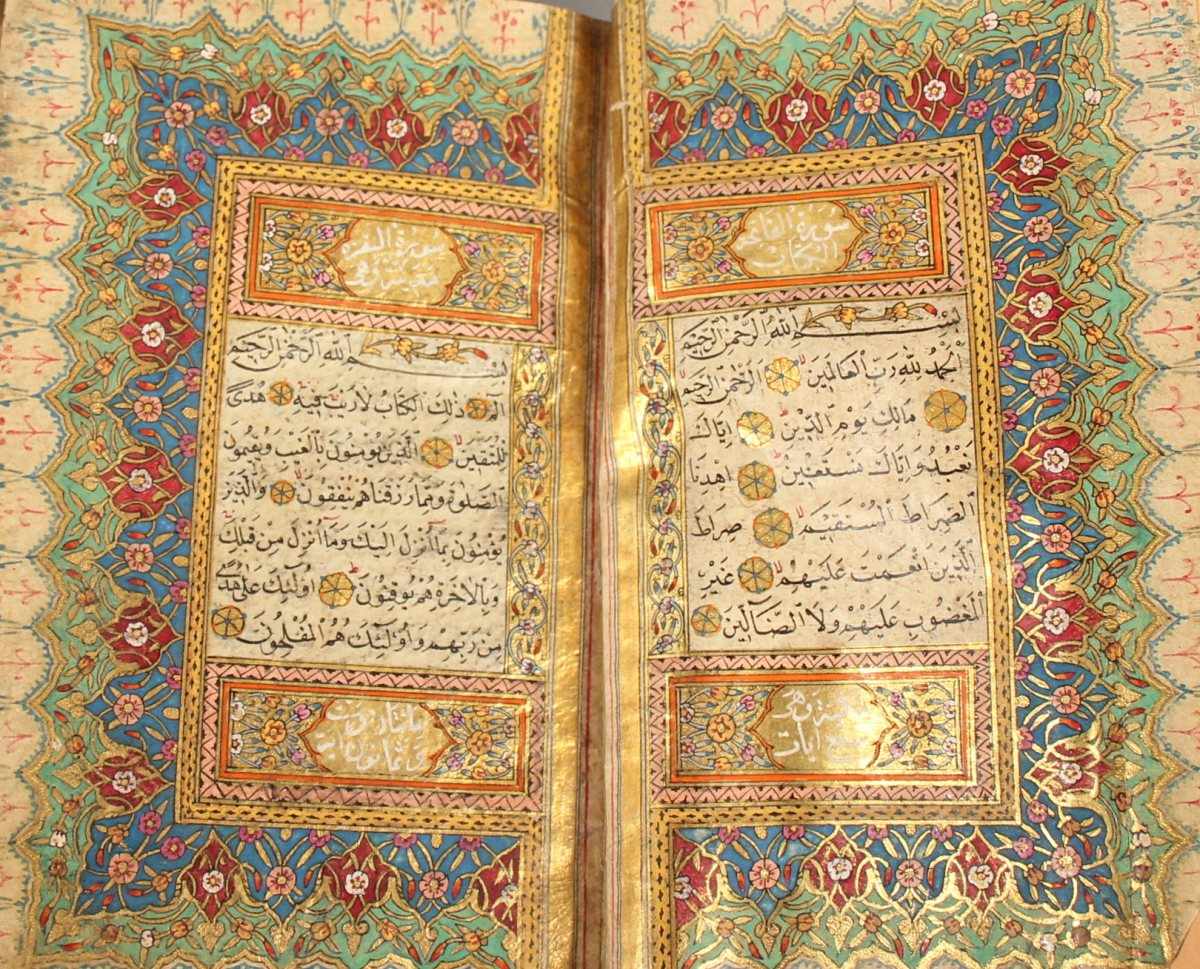 سورة الفاتحة
الكتاب
بسم الله الرحمن الرحيم
الحمد لله رب العالمين الرحمن الرحيم
مالك يوم الدين اياك
نعبد واياك نستعين اهدنا
الصراط المستقيم صراط
الذين انعمت عليهم غير
المغضوب عليهم ولا الضالين
وهي
ايات
سورة البقرة
بسم الله الرحمن الرحيم
الم ذلك الكتاب لا ريب فيه هدى
للمتقين الذين يؤمنون بالغيب ويقيمون
الصلوة ومما رزقناهم ينفقون والذين
يؤمنون بما انزل اليك وما انزل من قبلك
وبالاخرة هم يوقنون اولئك على هدى
من ربهم واولئك هم المفلحون
مائتان وست
وثمانون ايات